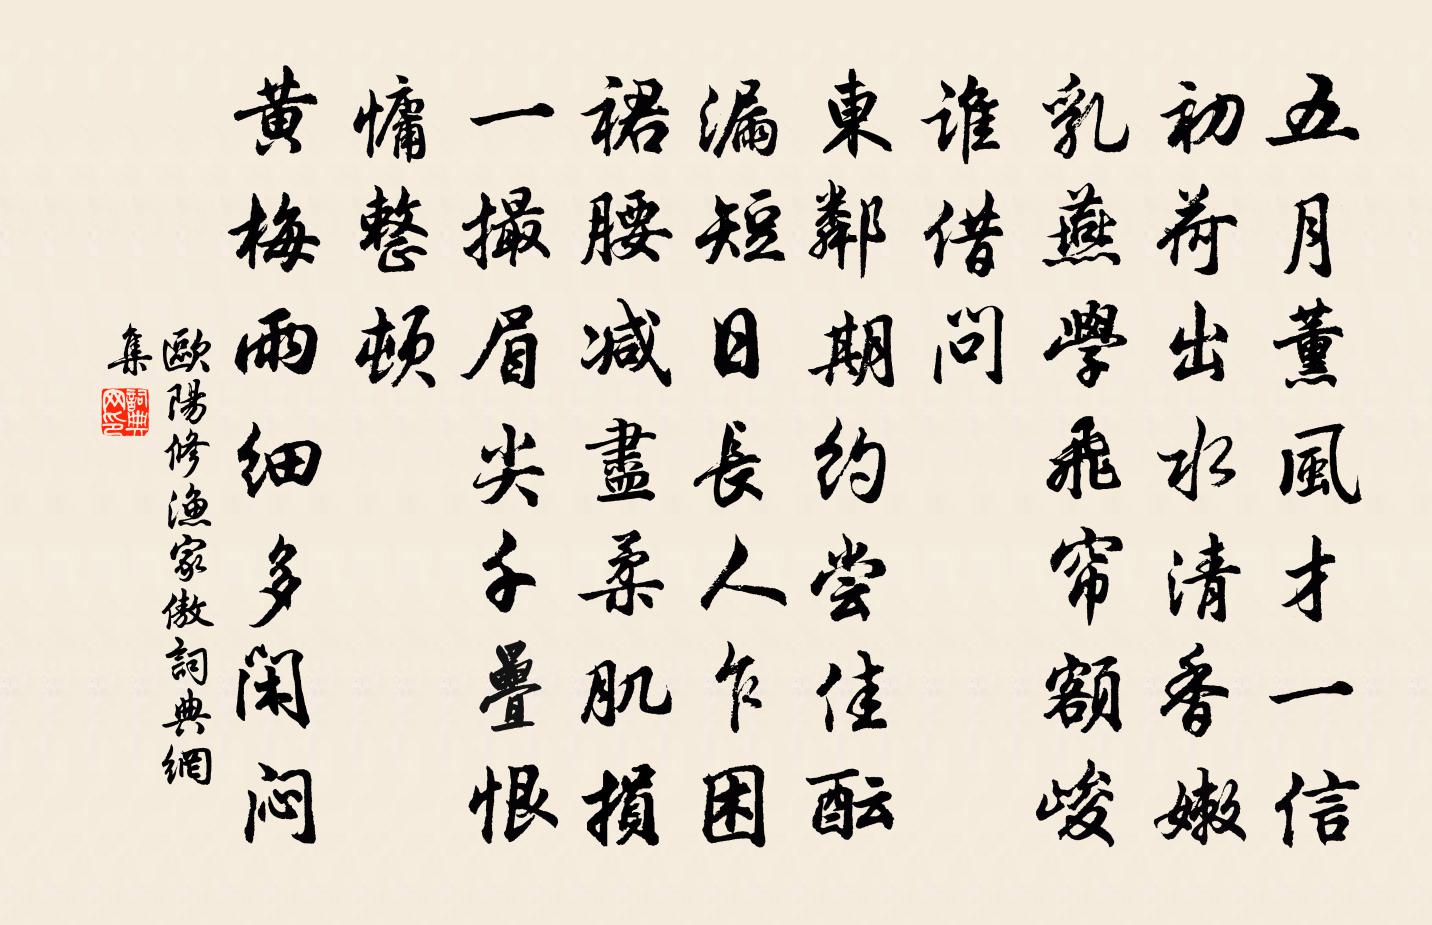 五月薰風才一信
初荷出水清香嫩
乳燕學飛帘額峻
谁借问
東鄰期約尝佳酝
漏短日長人乍困
裙腰减盡柔肌損
一撮眉尖千疊恨
慵整頓
黄梅雨细多闲闷
歐陽修漁家傲詞典網
集
詞典
网印